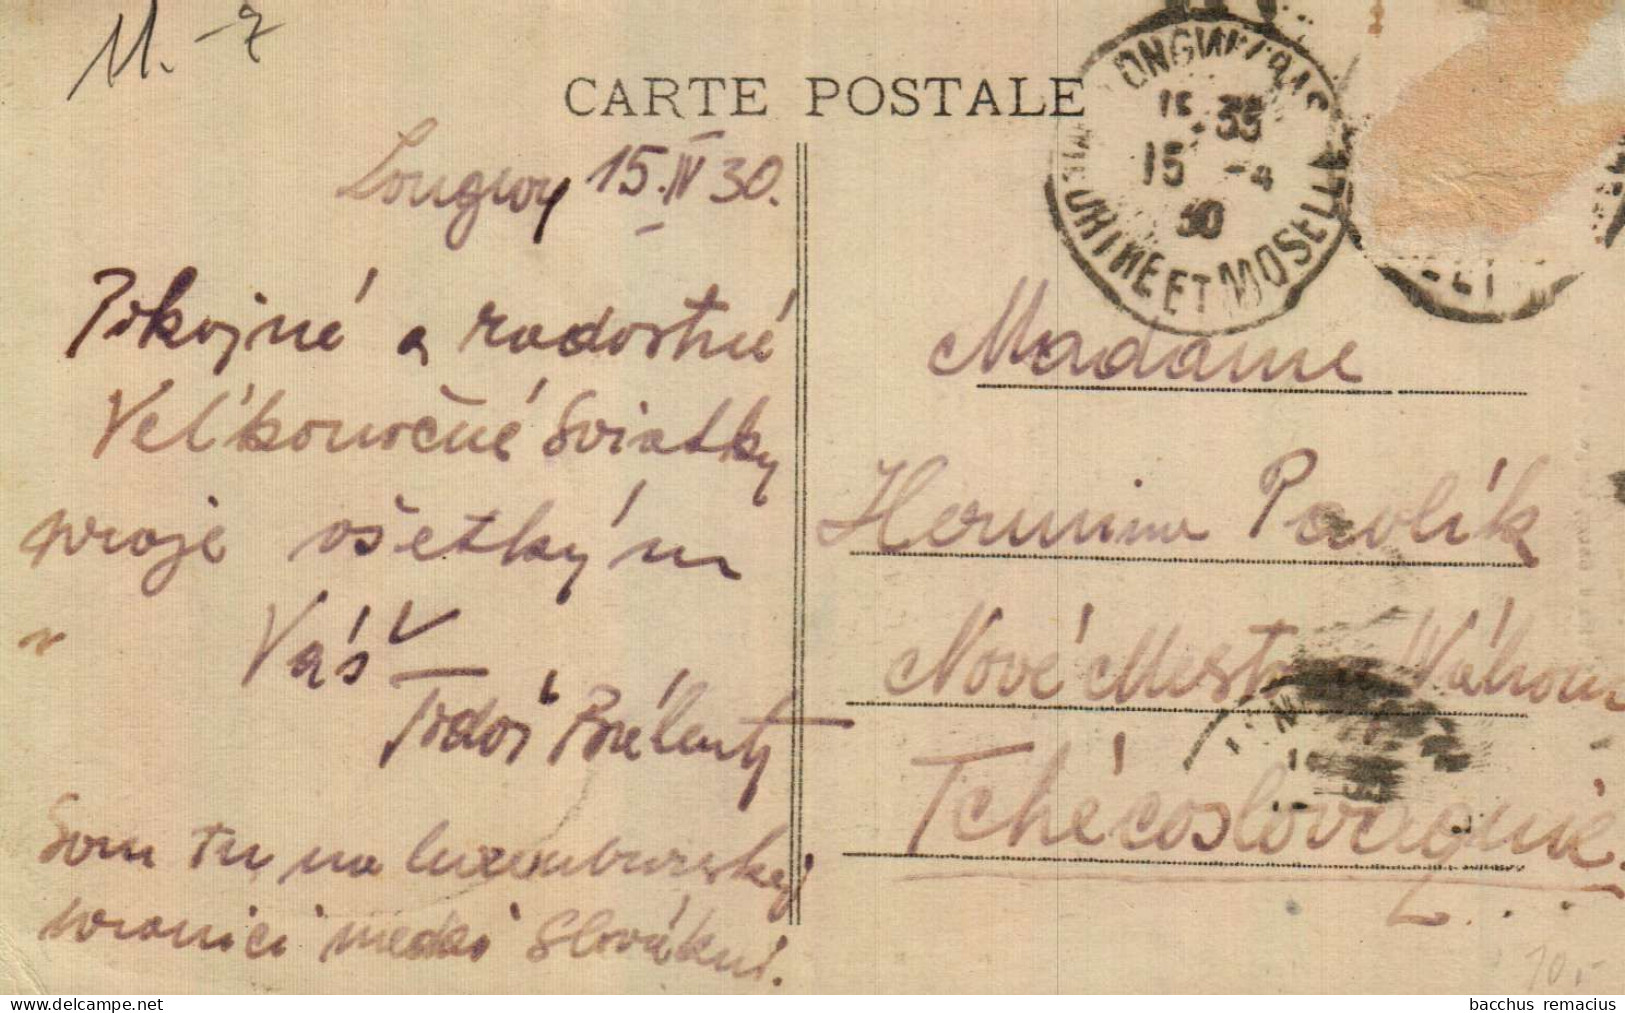 11.-7
CARTE POSTALE
LONGWY-BAS
15 35
15 -4
30
MEURTHE ET MOSELLE
Longwy 15.IV 30.
Pokojné a radostné
Veľkonočné Sviatky
praje všetkým
Váš
Som tu na luxemburskej
hranici medzi Slovákmi.
Madame
Hermina Pavlík
Nové Mesto n Váhom
Tchécoslovaquie.
10,-
bacchus remacius